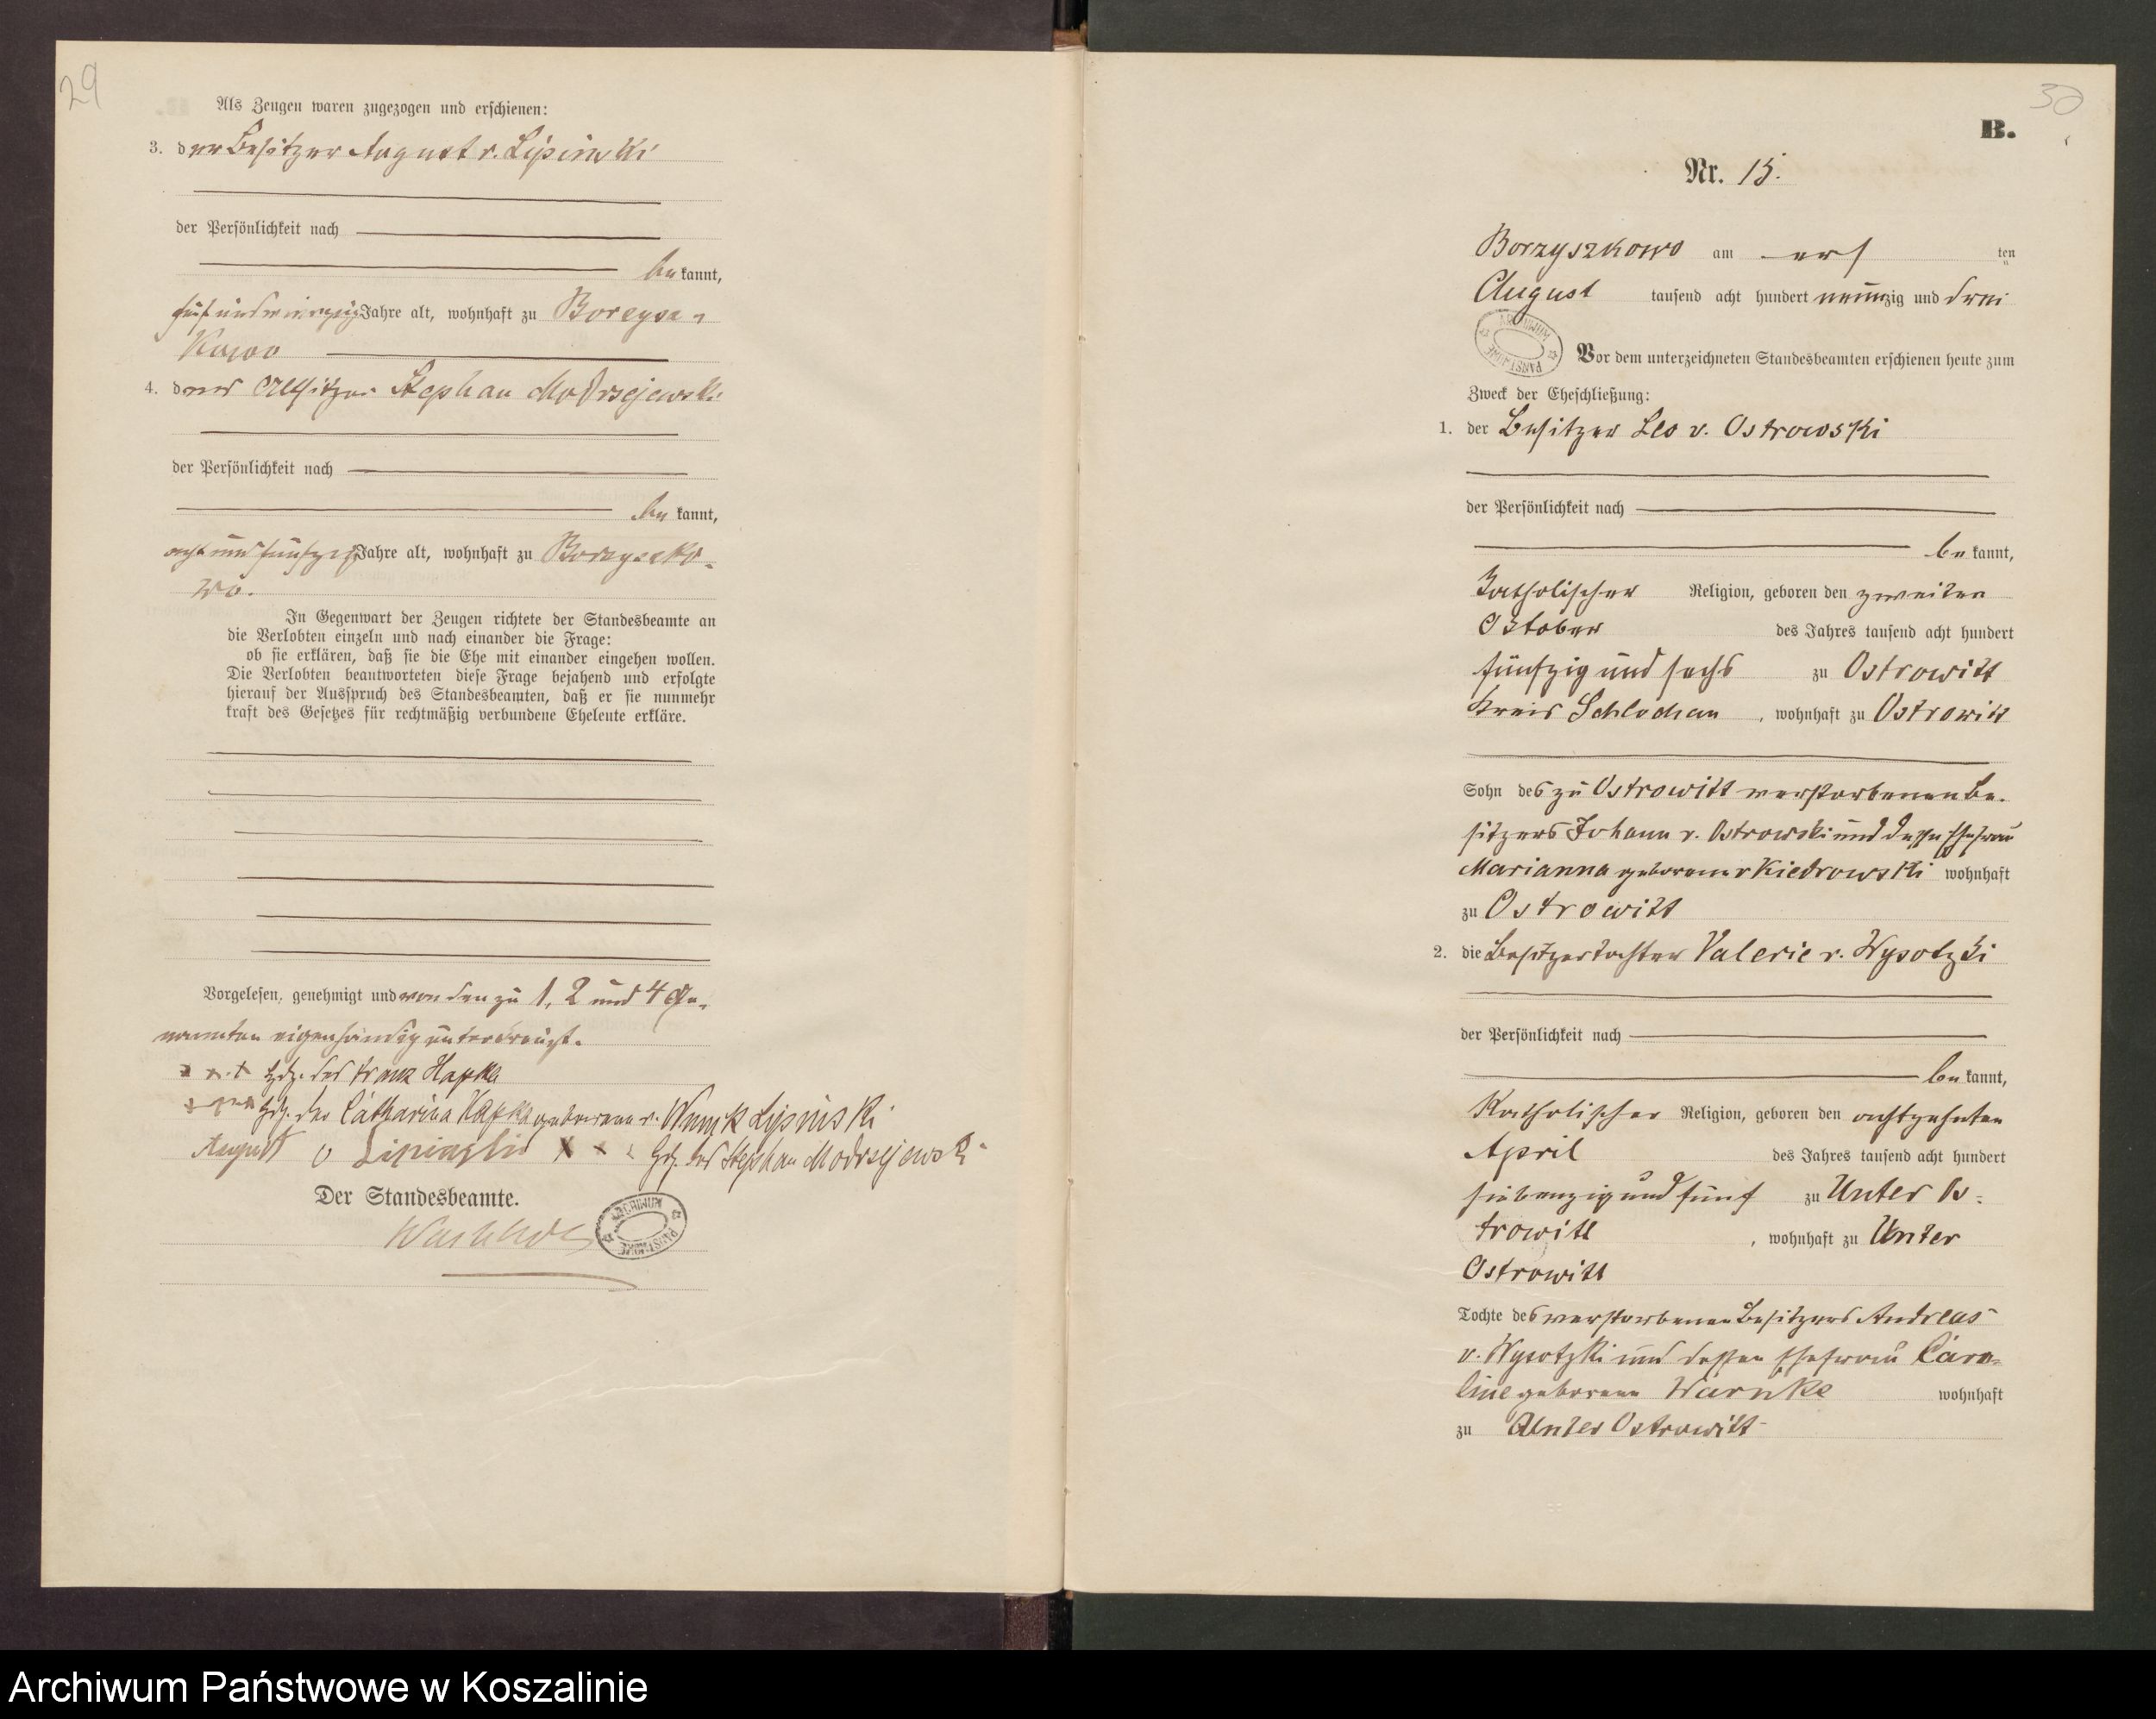 29
Als Zeugen waren zugezogen und erschienen:
3. der Besitzer August v. Lipinski
der Persönlichkeit nach
be kannt,
fünf und vierzig Jahre alt, wohnhaft zu Borzysz-
kowo
4. der Altsitzer Stephan Modrzejewski
der Persönlichkeit nach
be kannt,
acht und fünfzig Jahre alt, wohnhaft zu Borzyszko-
wo.
In Gegenwart der Zeugen richtete der Standesbeamte an
die Verlobten einzeln und nach einander die Frage:
ob sie erklären, daß sie die Ehe mit einander eingehen wollen.
Die Verlobten beantworteten diese Frage bejahend und erfolgte
hierauf der Ausspruch des Standesbeamten, daß er sie nunmehr
kraft des Gesetzes für rechtmäßig verbundene Eheleute erkläre.
Vorgelesen, genehmigt und von den zu 1, 2 und 4 Ge-
nannten eigenhändig unterkreuzt.
x x t Hdz. des Franz Hapka
Hdz. der Catharina Hapka geborene v. Lipinski
August v Lipinski x x x Hdz. des Stephan Modrzejewski
Der Standesbeamte.
ARCHIWUM PAŃSTWOWE
30
B.
Nr. 15.
Borzyszkowo am ers ten
August tausend acht hundert neunzig und drei
ARCHIWUM PAŃSTWOWE
Vor dem unterzeichneten Standesbeamten erschienen heute zum
Zweck der Eheschließung:
1. der Besitzer Leo v. Ostrowski
der Persönlichkeit nach
be kannt,
Katholischer Religion, geboren den zweiten
Oktober des Jahres tausend acht hundert
fünfzig und sechs zu Ostrowitt
Kreis Schlochau, wohnhaft zu Ostrowitt
Sohn des zu Ostrowitt verstorbenen Be-
sitzers Johann v. Ostrowski und dessen Ehefrau
Marianna geborene v Kiedrowski wohnhaft
zu Ostrowitt
2. die Besitzertochter Valerie v. Wysotzki
der Persönlichkeit nach
be kannt,
Katholischer Religion, geboren den achtzehnten
April des Jahres tausend acht hundert
siebenzig und fünf zu Unter Os-
trowitt, wohnhaft zu Unter
Ostrowitt
Tochte des verstorbenen Besitzers Andreas
v. Wysotzki und dessen Ehefrau Caro-
line geborene Warnke wohnhaft
zu Unter Ostrowitt
Archiwum Państwowe w Koszalinie